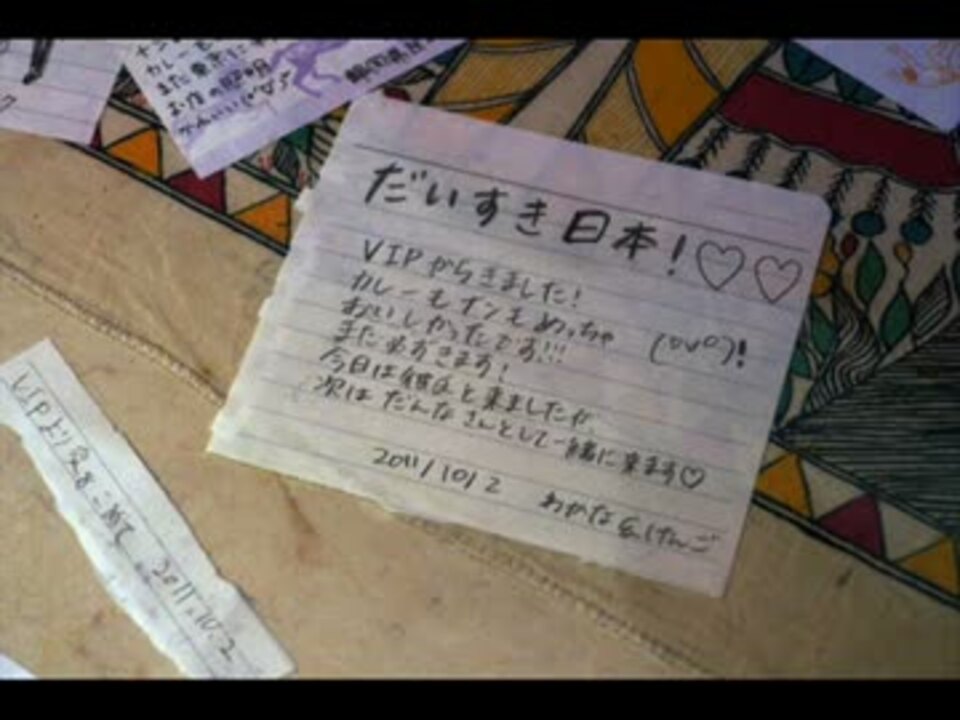 カレーも
また東京に
お店の
だいすき日本！♡♡
VIPからきました！
カレーもナンもめっちゃ
おいしかったです!!!
また必ずきます！
今日は彼氏と来ましたが、
次はだんなさんとして一緒に来ます♡
2011/10/2 わかな&けんご
VIPより愛をこめて 2011.10.2